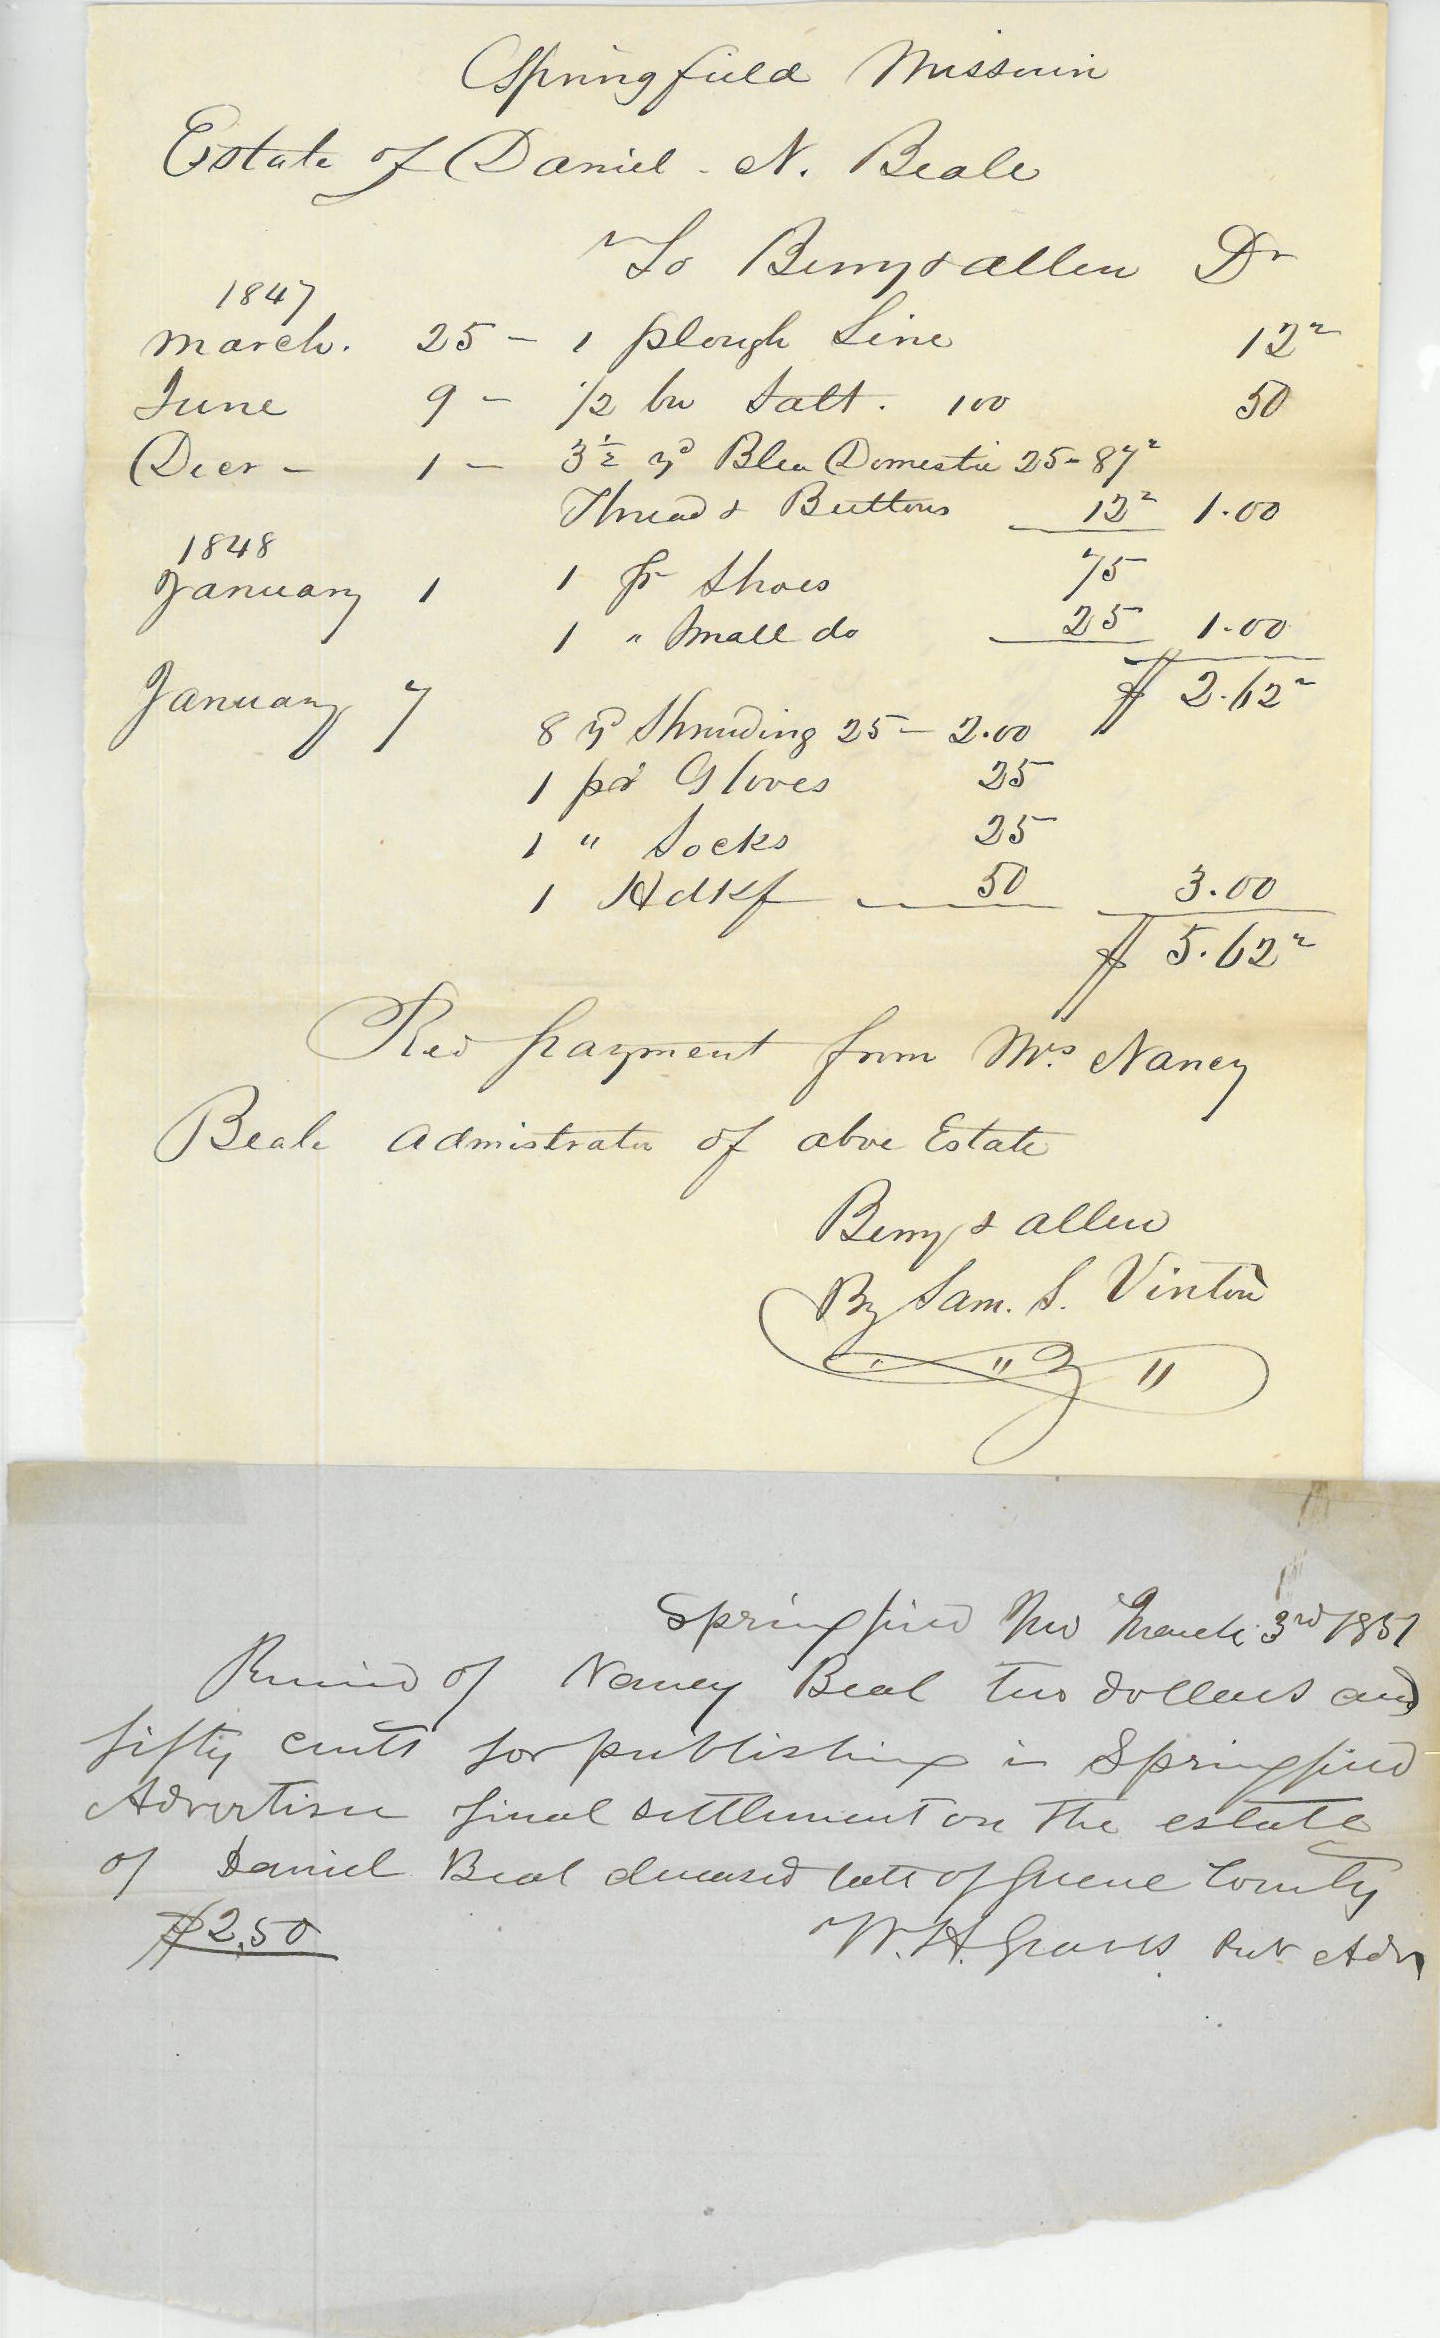 Springfield Missouri
Estate of Daniel N. Beale
To Berry & Allen Dr
1847
March. 25 - 1 plough Line 12 2
June 9 - 1/2 bu Salt. 100 50
Decr - 1 - 3 1/2 yd Blea Domestic 25 - 87 2
Thread & Buttons 12 2 1.00
1848
January 1 1 pr Shoes 75
1 " Small do 25 1.00
$ 2.62 2
January 7
8 yd Shrouding 25 - 2.00
1 pr Gloves 25
1 " Socks 25
1 Hdkf 50 3.00
$ 5.62 2
Recd payment from Mrs. Nancy
Beale Admistrator of abve Estate
Berry & Allen
By Sam. S. Vinton
Springfield Mo March 3rd 1851
Received of Nancy Beal two dollars and
fifty cents for publishing in Springfield
Advertiser final settlement on the estate
of Daniel Beal deceased late of Greene County
$2,50 W. H. Graves Adm